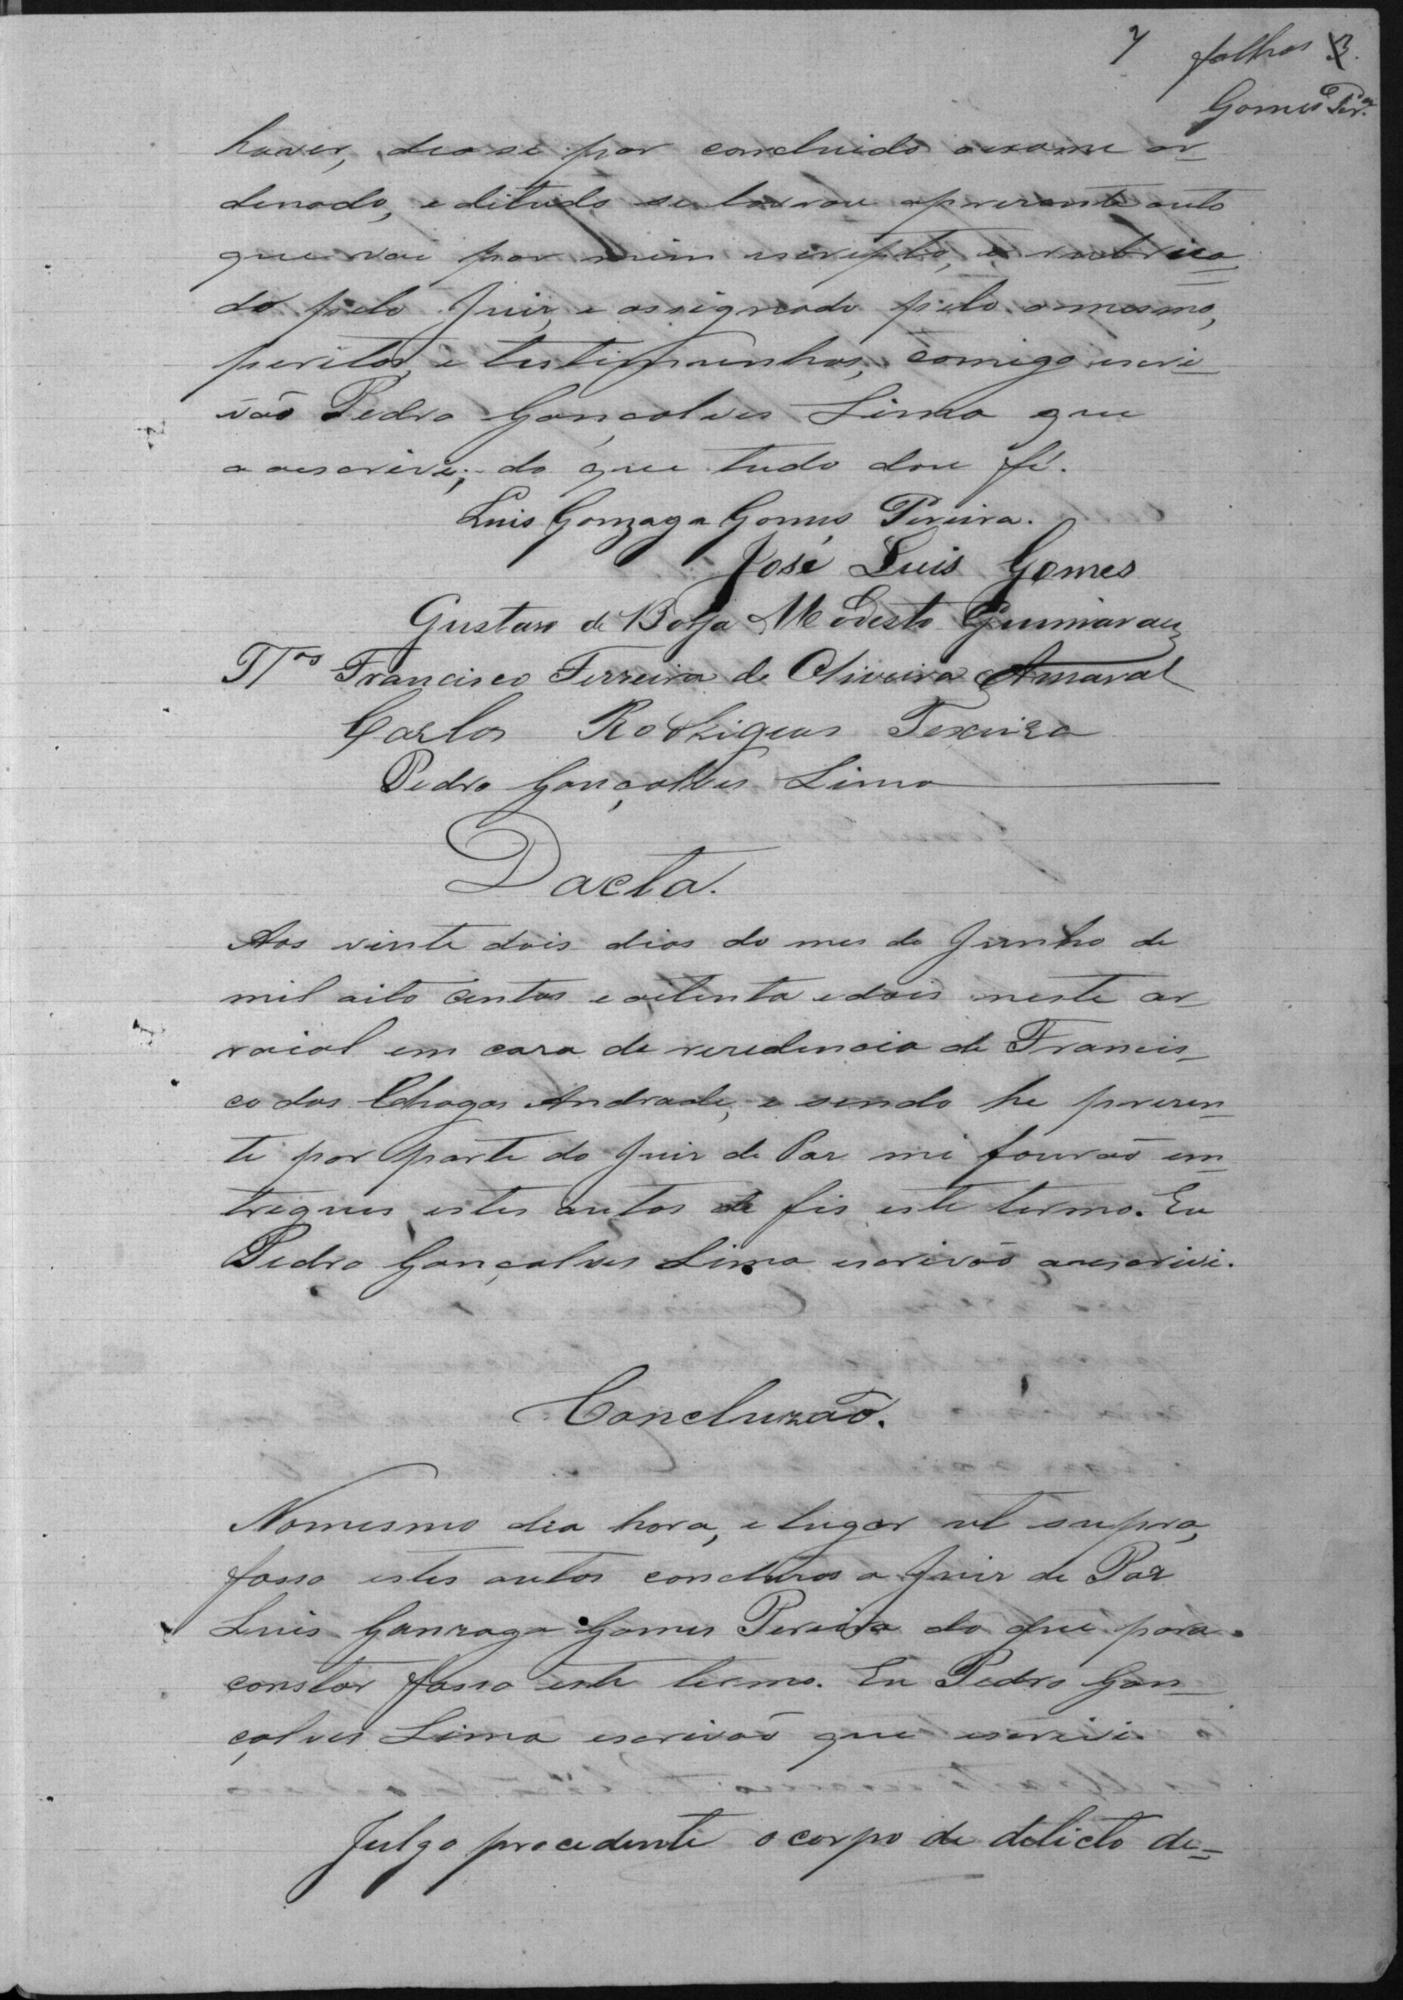 7 folhas 3.
Gomes Per.ª
haver, deose por concluido oexame or-
denado, e ditudo se lavrou opresente auto
que vai por mim escripto, e rubrica-
do pelo Juiz, e assignado pelo omesmo,
peritos, e testimunhas, comigo escri-
vão Pedro Gonçalves Lima que
oescrivi; do que tudo dou fé.
Luis Gonzaga Gomes Pereira.
José Luis Gomes
Gustavo de Borja Modesto Guimaraes
Ttas Francisco Ferreira de Oliveira Amaral
Carlos Rodrigues Texeira
Pedro Gonçalves Lima
Dacta.
Aos vinte dois dias do mes de Junho de
mil oito centos e oitenta edois neste ar-
raial em casa de resedencia de Francis-
co das Chagas Andrade, e sendo he presen-
te por parte do Juiz de Paz me fourão em-
tregues estes autos de fis este termo. Eu
Pedro Gonçalves Lima escrivão oescrivi.
Concluzão.
Nomesmo dia hora, e lugar ut supra,
fasso estes autos concluzos o Juiz de Paz
Luis Gonzaga Gomes Pereira do que para
constar fasso este termo. Eu Pedro Gon-
çalves Lima escrivão que escrivi.
Julgo procedente o corpo de delicto de-